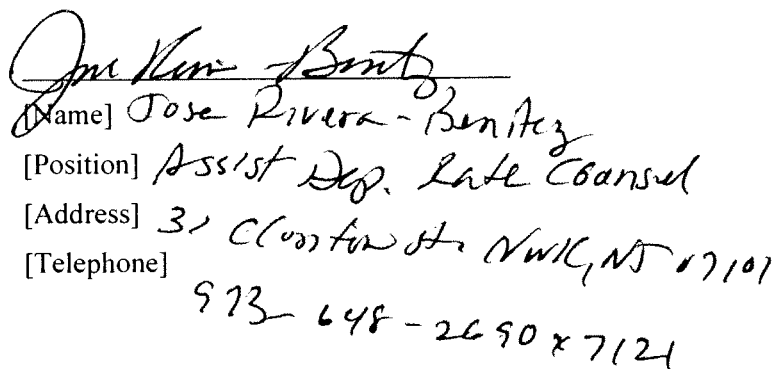 Jose Rivera-Benitez
[Name] Jose Rivera-Benitez
[Position] Assist Dep. Rate Counsel
[Address] 31 Clinton St. Nwk, NJ 07101
[Telephone]
973-648-2690 x7121